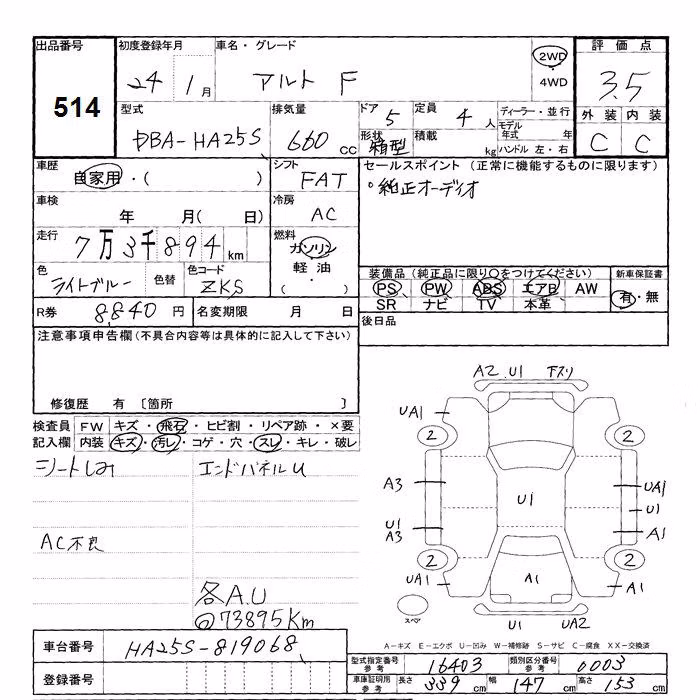 出品番号
514
初度登録年月
24 1月
車名・グレード
アルト F
2WD
・
4WD
評価点
3.5
外装 内装
C C
型式
DBA-HA25S
排気量
660 cc
ドア 5
形状 箱型
定員 4 人
積載 kg
ディーラー・並行
モデル年式 年
ハンドル 左・右
車歴
自家用・( )
シフト
FAT
セールスポイント (正常に機能するものに限ります)
・純正オーディオ
車検
年 月( 日)
冷房
AC
走行
7万3千894km
燃料
ガソリン
軽油
( ・ )
色
ライトブルー
色替
色コード
ZKS
装備品 (純正品に限り○をつけてください)
PS・PW・ABS・エアB・AW
SR ナビ TV 本革
新車保証書
有・無
R券 8,840 円
名変期限 月 日
後日品
注意事項申告欄(不具合内容等は具体的に記入して下さい)
修復歴 有 〔箇所 〕
検査員記入欄
FW キズ・飛石・ヒビ割・リペア跡・×要
内装 キズ・汚レ・コゲ・穴・スレ・キレ・破レ
シートしみ
エンドパネルU
AC不良
各A.U
◎73895Km
A2 U1 下スリ
UA1
2 2
A3
U1
UA1
U1
U1
A3
A1
2 2
UA1
A1
A1
スペア
U1 UA2
A-キズ E-エクボ U-凹み W-補修跡 S-サビ C-腐食 XX-交換済
車台番号
HA25S-819068
登録番号
型式指定番号 参考 16403
類別区分番号 参考 0003
車庫証明用 参考 長さ 339 cm 幅 147 cm 高さ 153 cm